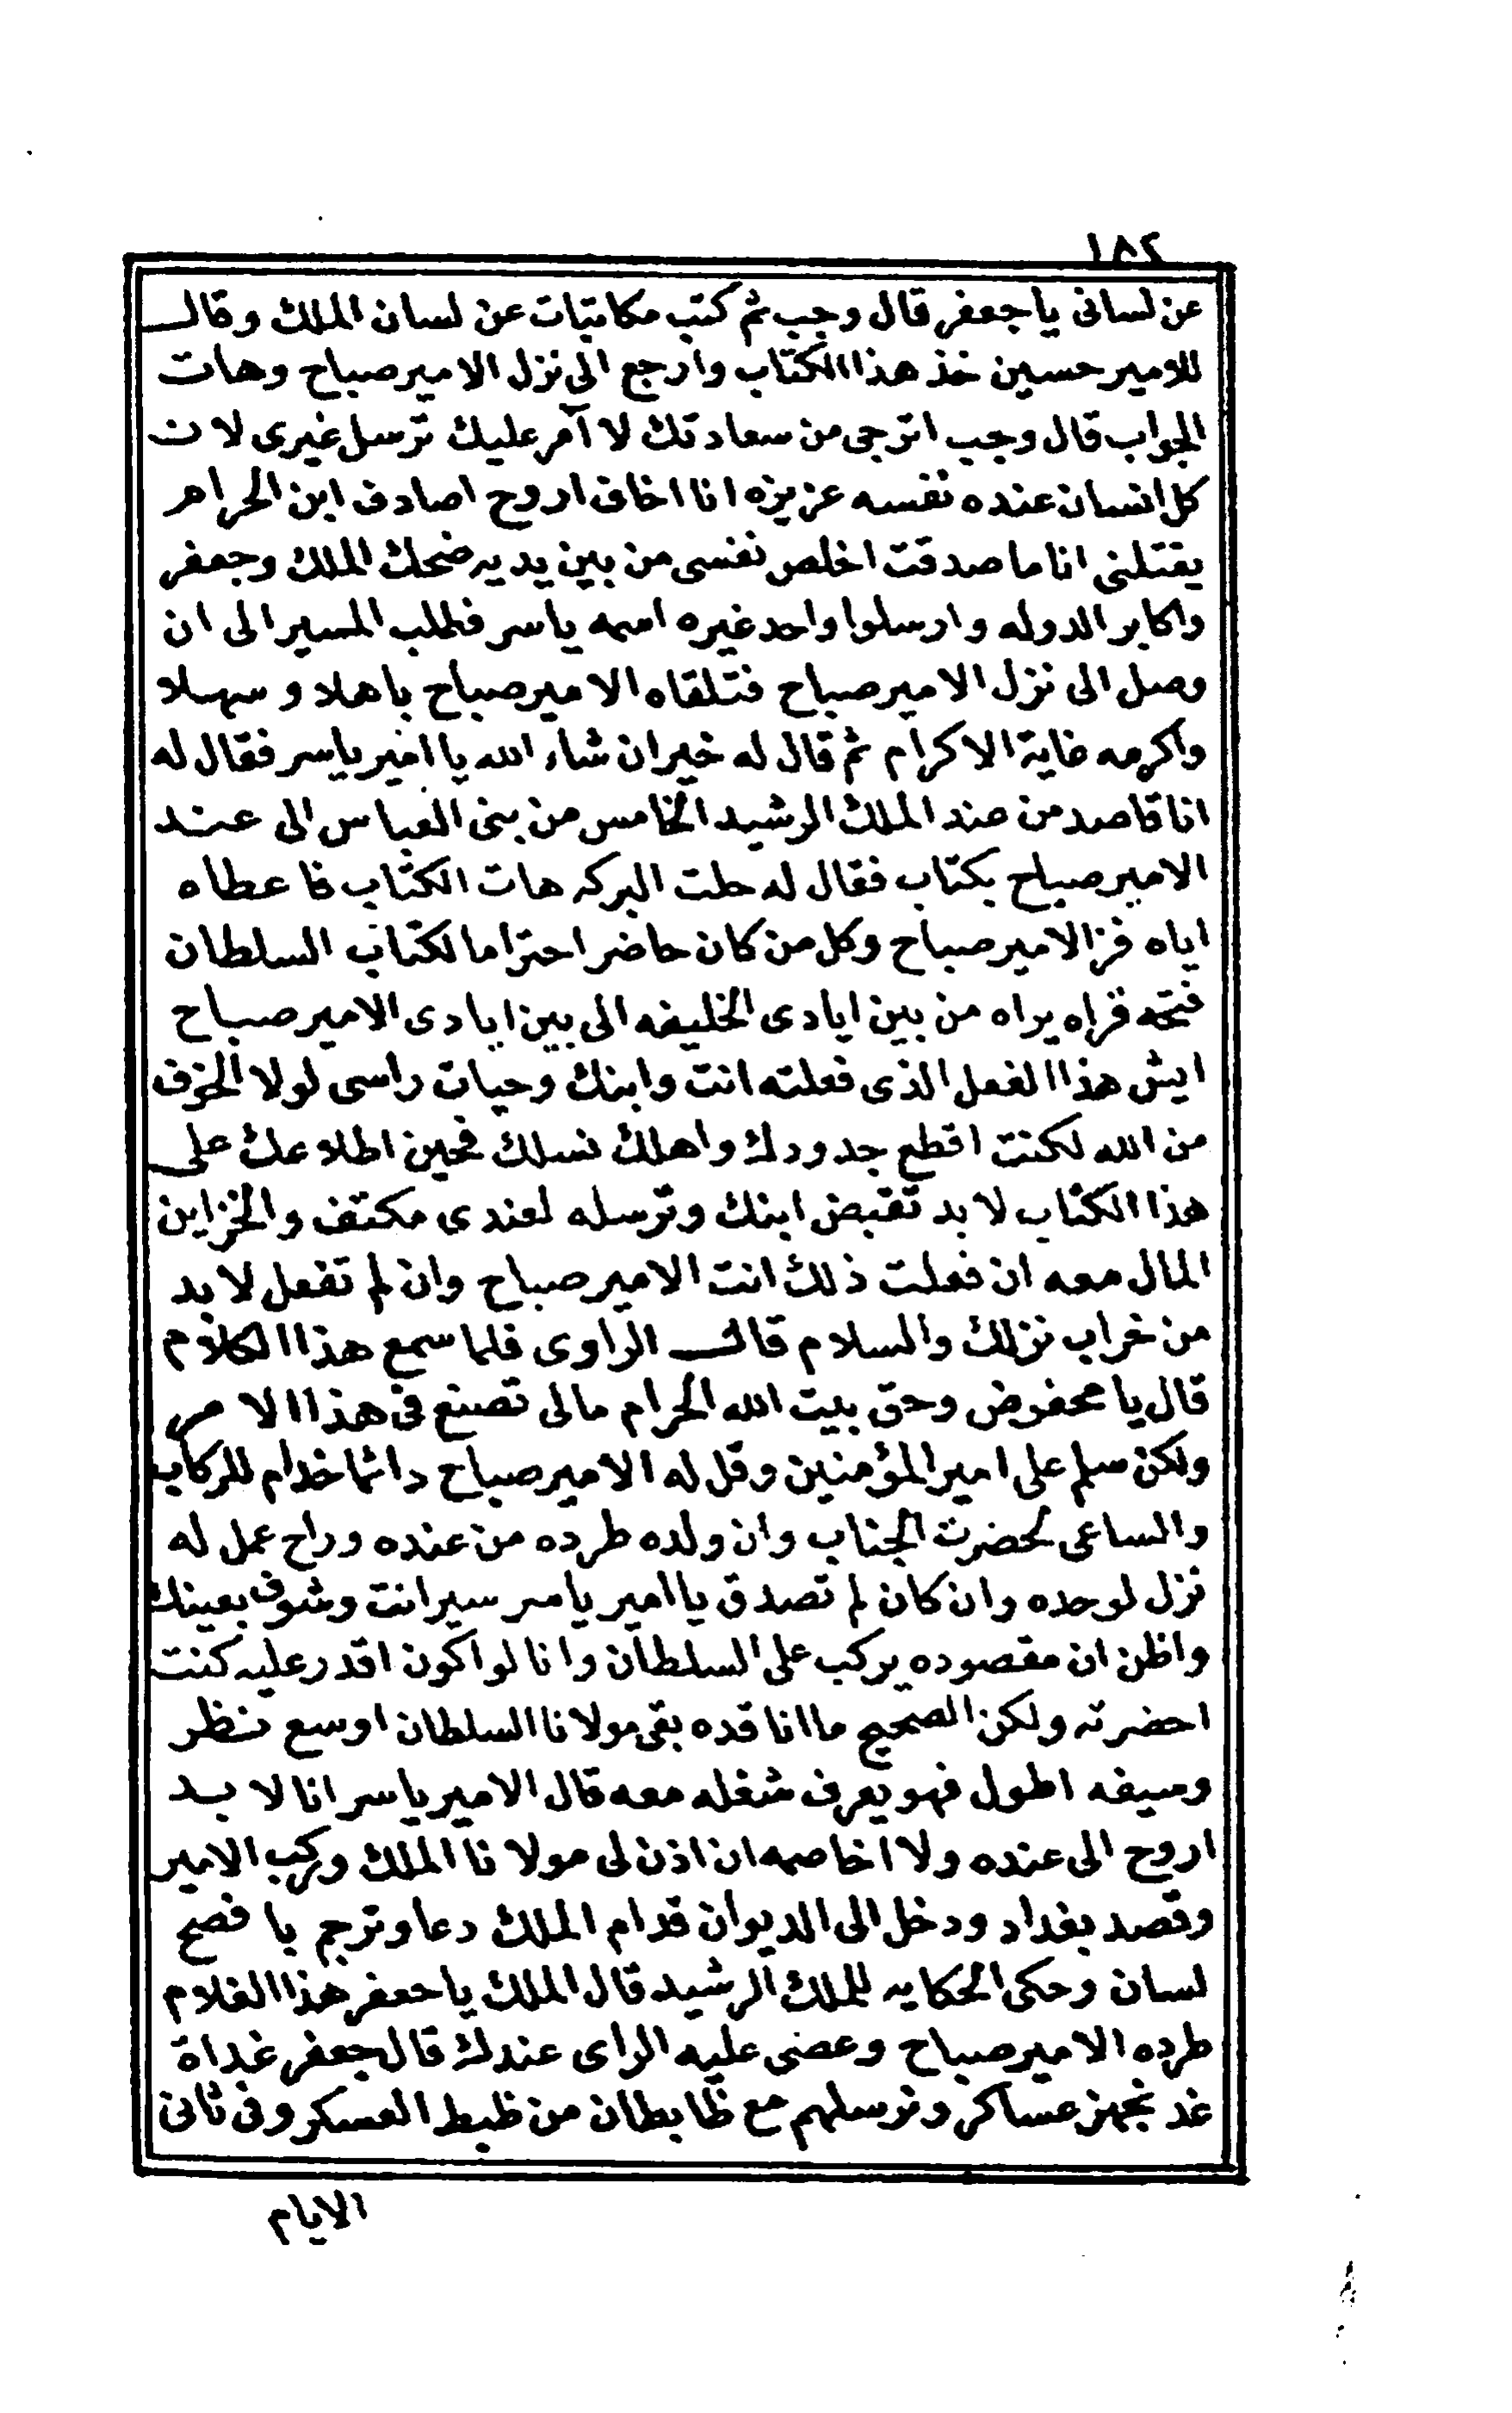 ١٥٢
عن لسانى يا جعفر قال وجب ثم كتب مكاتبات عن لسان الملك وقال
للامير حسين خذ هذا الكتاب وارجع الى نزل الامير صباح وهات
الجواب قال وجب اترجى من سعادتك لا آمر عليك ترسل غيرى لان
كل انسان عنده نفسه عزيزه انا اخاف اروح اصادف ابن الحرام
يقتلنى انا ما صدقت اخلص نفسى من بين يديه ضحك الملك وجعفر
واكابر الدوله وارسلوا واحد غيره اسمه ياسر فطلب المسير الى ان
وصل الى نزل الامير صباح فتلقاه الامير صباح باهلا و سهلا
واكرمه غاية الاكرام ثم قال له خير ان شاء الله يا امير ياسر فقال له
انا قاصد من عند الملك الرشيد الخامس من بنى العباس الى عند
الامير صباح بكتاب فقال له حلت البركه هات الكتاب فاعطاه
اياه فز الامير صباح وكل من كان حاضر احتراما لكتاب السلطان
فتحه قراه يراه من بين ايادى الخليفه الى بين ايادى الامير صباح
ايش هذا الفعل الذى فعلته انت وابنك وحيات راسى لولا الخوف
من الله لكنت اقطع جدودك واهلك نسلك فحين اطلاعك على
هذا الكتاب لا بد تقبض ابنك وترسله لعندى مكتف والخزاين
المال معه ان فعلت ذلك انت الامير صباح وان لم تفعل لا بد
من خراب نزلك والسلام قال الراوى فلما سمع هذا الكلام
قال يا محفوض وحق بيت الله الحرام مالى تصنع فى هذا الامر
ولكن سلم على امير المؤمنين وقل له الامير صباح دائما خدام للركاب
والساعى لحضرت الجناب وان ولده طرده من عنده وراح عمل له
نزل لوحده وان كان لم تصدق يا امير ياسر سير انت وشوف بعينك
واظن ان مقصوده يركب على السلطان وانا لو اكون اقدر عليه كنت
احضرته ولكن الصحيح ما انا قده بقى مولانا السلطان اوسع نظر
وسيفه اطول فهو يعرف شغله معه قال الامير ياسر انا لا بد
اروح الى عنده ولا اخاصمه ان اذن لى مولانا الملك وركب الامير
وقصد بغداد ودخل الى الديوان قدام الملك دعا وترجم بافصح
لسان وحكى الحكايه للملك الرشيد قال الملك يا جعفر هذا الغلام
طرده الامير صباح وعصى عليه الراى عندك قال جعفر غداة
غد نجهز عساكر ونرسلهم مع ظابطان من ظبط العسكر وفى ثانى
الايام